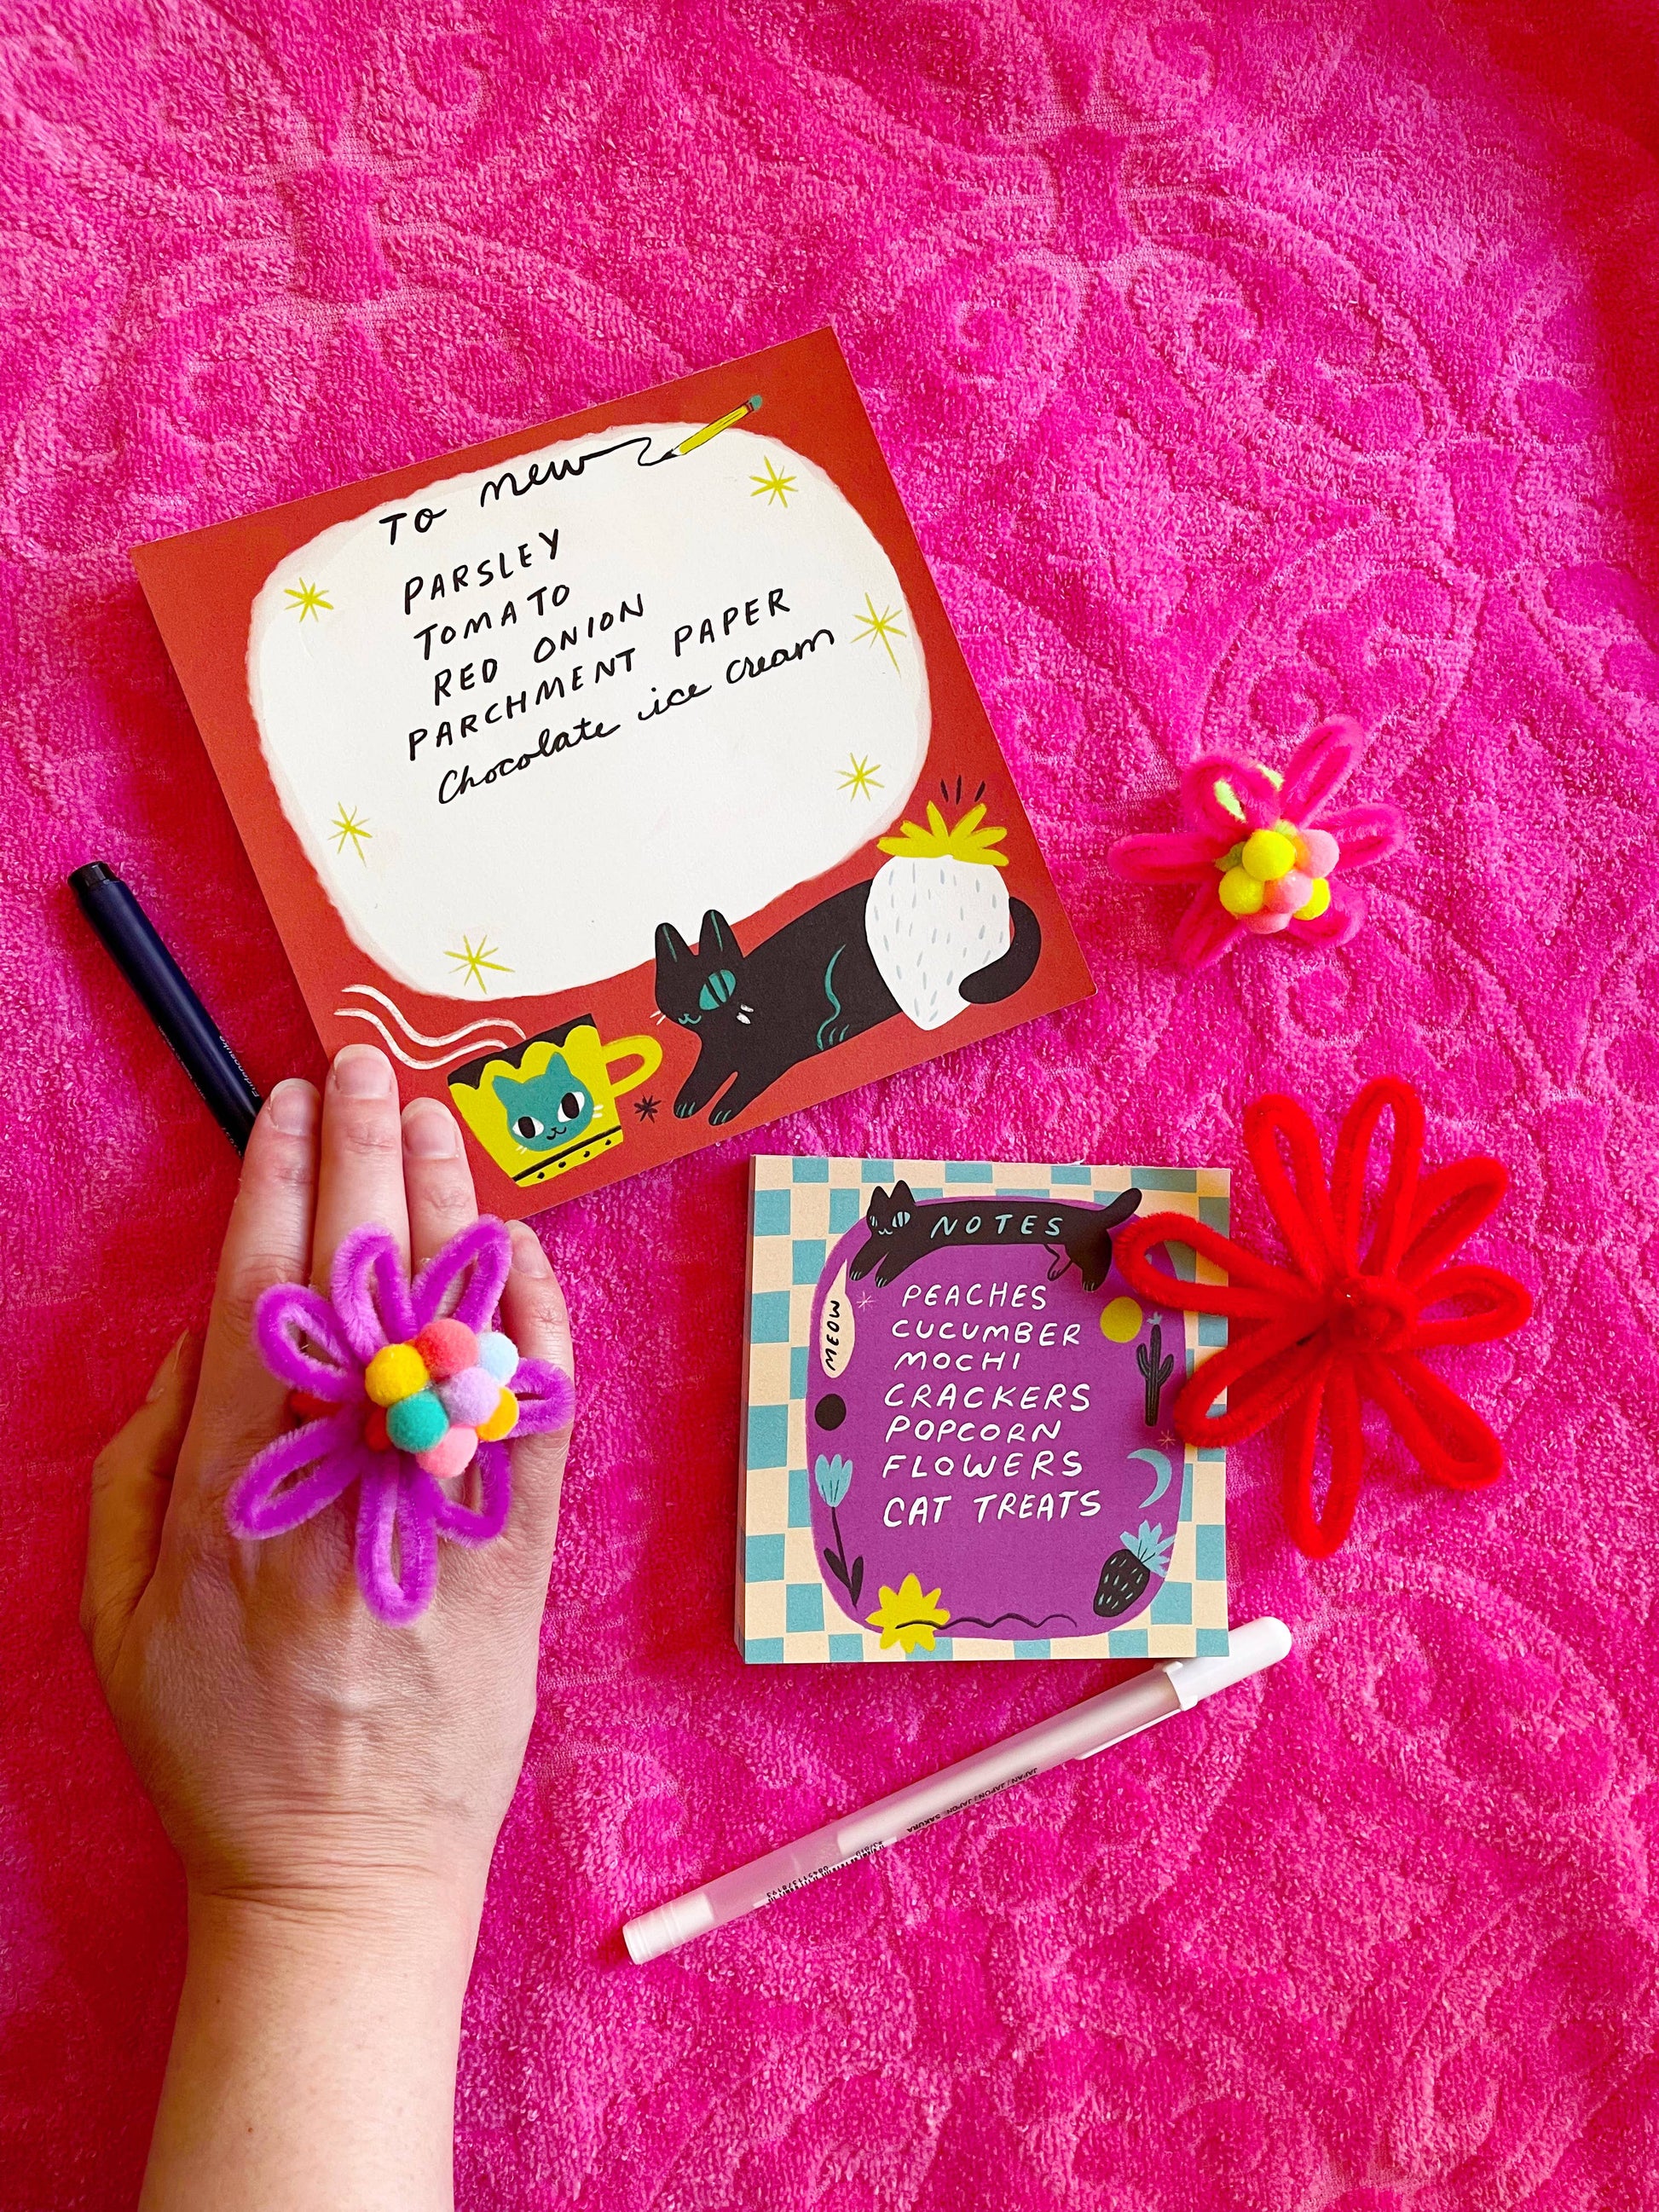 To new
PARSLEY
TOMATO
RED ONION
PARCHMENT PAPER
Chocolate ice cream
NOTES
MEOW
PEACHES
CUCUMBER
MOCHI
CRACKERS
POPCORN
FLOWERS
CAT TREATS
JAPAN / JAPON
SAKURA